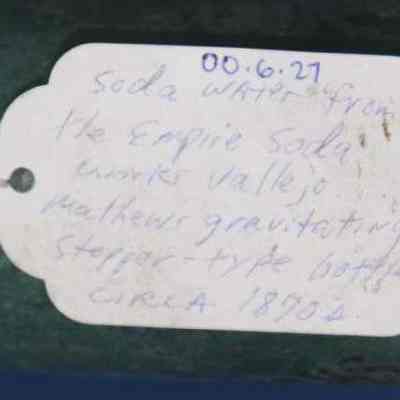 00.6.27
Soda Water from
the Empire Soda
works Vallejo
Mathews gravitating
stepper-type bottles
CIRCA 1870s.